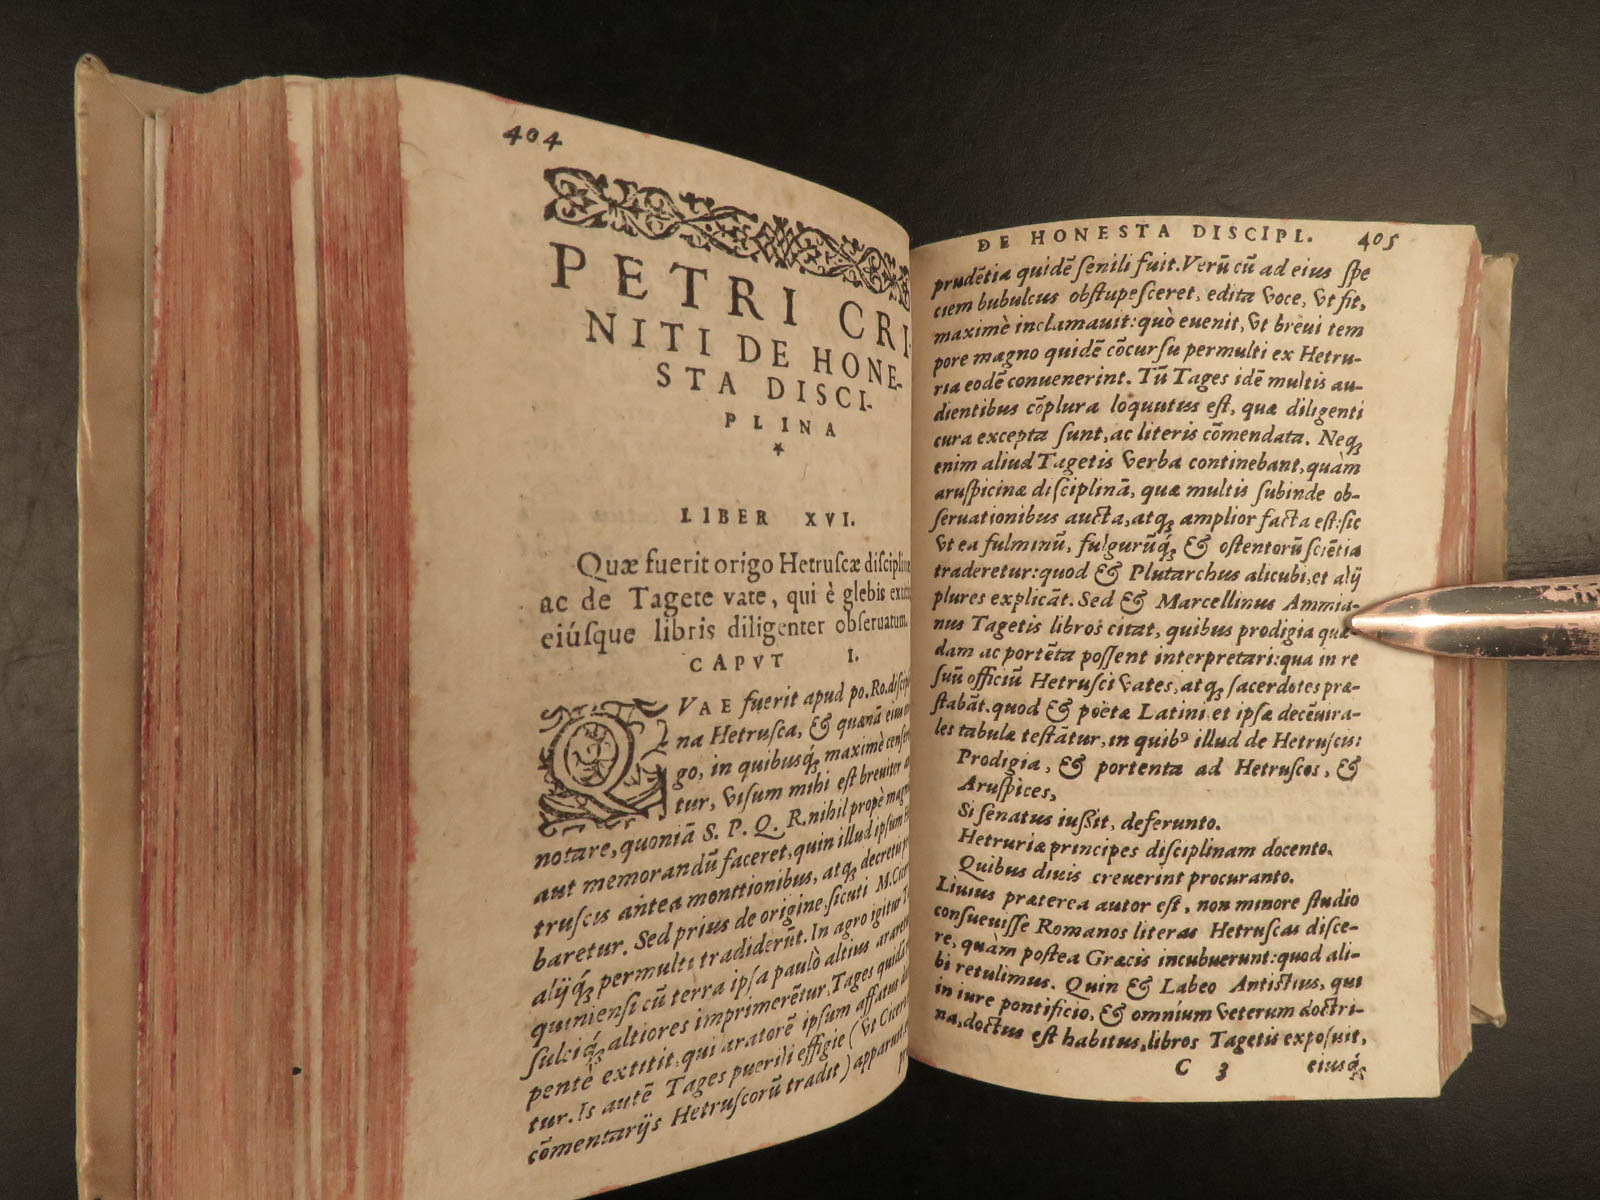 404
PETRI CRI-
NITI DE HONE-
STA DISCI-
PLINA
*
LIBER XVI.
Quæ fuerit origo Hetruſcæ
ac de Tagete vate, qui è glebis
eiúſque libris diligenter obſeruatum.
CAPVT I.
QVAE fuerit apud po. Ro.
na Hetruſca, & quænā eius
go, in quibuſq́; maximè
tur, viſum mihi eſt breuiter
notare, quoniā S. P. Q. R. nihil propè
aut memorandū faceret, quin illud ipſum
truſcis antea monitionibus, atq; decreti
baretur. Sed prius de origine, ſicuti M.
alijq́; permulti tradiderūt. In agro igitur
quinienſi cū terra ipſa paulò altius
ſulciq́; altiores imprimerētur, Tages
pentè extitit, qui aratorē ipſum affatus
tur. Is autē Tages puerili effigie (vt
cōmentarijs Hetruſcorū tradit)
DE HONESTA DISCIPL. 405
prudētia quidē ſenili fuit. Verū cū ad eius ſpe
ciem bubulcus obſtupeſceret, edita voce, vt fit,
maximè inclamauit: quò euenit, vt breui tem
pore magno quidē cōcurſu permulti ex Hetru-
ria eodē conuenerint. Tū Tages idē multis au-
dientibus cōplura loquutus eſt, quæ diligenti
cura excepta ſunt, ac literis cōmendata. Neq;
enim aliud Tagetis verba continebant, quàm
aruſpicinæ diſciplinā, quæ multis ſubinde ob-
ſeruationibus aucta, atq; amplior facta eſt: ſic
vt ea fulminū, fulgurūq́; & oſtentorū ſciētia
traderetur: quod & Plutarchus alicubi, et alij
plures explicāt. Sed & Marcellinus Ammia-
nus Tagetis libros citat, quibus prodigia quæ-
dam ac portēta poſſent interpretari: qua in re
ſuū officiū Hetruſci vates, atq; ſacerdotes præ-
ſtabāt. quod & poëtæ Latini, et ipſæ decēuira-
les tabulæ teſtātur, in quibꝰ illud de Hetruſcis:
Prodigia, & portenta ad Hetruſcos, &
Aruſpices,
Si ſenatus iuſſit, deferunto.
Hetruriæ principes diſciplinam docento.
Quibus diuis creuerint procuranto.
Liuius præterea autor eſt, non minore ſtudio
conſueuiſſe Romanos literas Hetruſcas diſce-
re, quàm poſtea Græcis incubuerunt: quod ali-
bi retulimus. Quin & Labeo Antiſtius, qui
in iure pontificio, & omnium veterum doctri-
na, doctus eſt habitus, libros Tagetis expoſuit,
C 3 eiusq́;